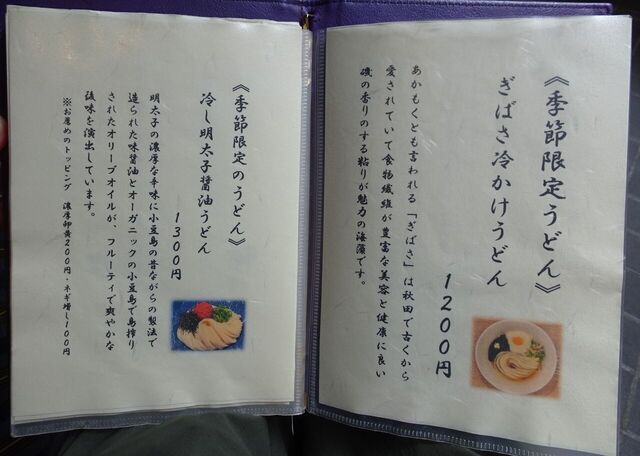 《季節限定うどん》
ぎばさ冷かけうどん
1200円
あかもくとも言われる「ぎばさ」は秋田で古くから
愛されていて食物繊維が豊富な美容と健康に良い
磯の香りのする粘りが魅力の海藻です。
《季節限定のうどん》
冷し明太子醤油うどん
1300円
明太子の濃厚な辛味に小豆島の昔ながらの製法で
造られた味醤油とオーガニックの小豆島で島搾り
されたオリーブオイルが、フルーティで爽やかな
後味を演出しています。
※お薦めのトッピング 濃厚卵黄200円・ネギ増し100円